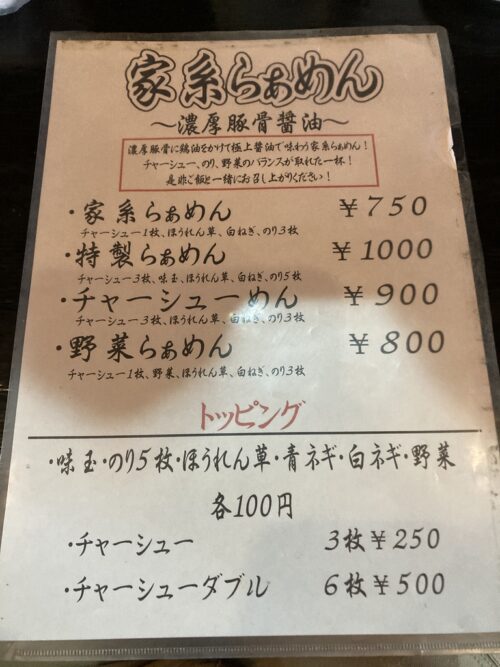 家系らぁめん
～濃厚豚骨醤油～
濃厚豚骨に鶏油をかけて極上醤油で味わう家系らぁめん！
チャーシュー、のり、野菜のバランスが取れた一杯！
是非ご飯と一緒にお召し上がりください！
・家系らぁめん ￥750
チャーシュー1枚、ほうれん草、白ねぎ、のり3枚
・特製らぁめん ￥1000
チャーシュー3枚、味玉、ほうれん草、白ねぎ、のり5枚
・チャーシューめん ￥900
チャーシュー3枚、ほうれん草、白ねぎ、のり3枚
・野菜らぁめん ￥800
チャーシュー1枚、野菜、ほうれん草、白ねぎ、のり3枚
トッピング
・味玉・のり5枚・ほうれん草・青ネギ・白ネギ・野菜
各100円
・チャーシュー 3枚￥250
・チャーシューダブル 6枚￥500